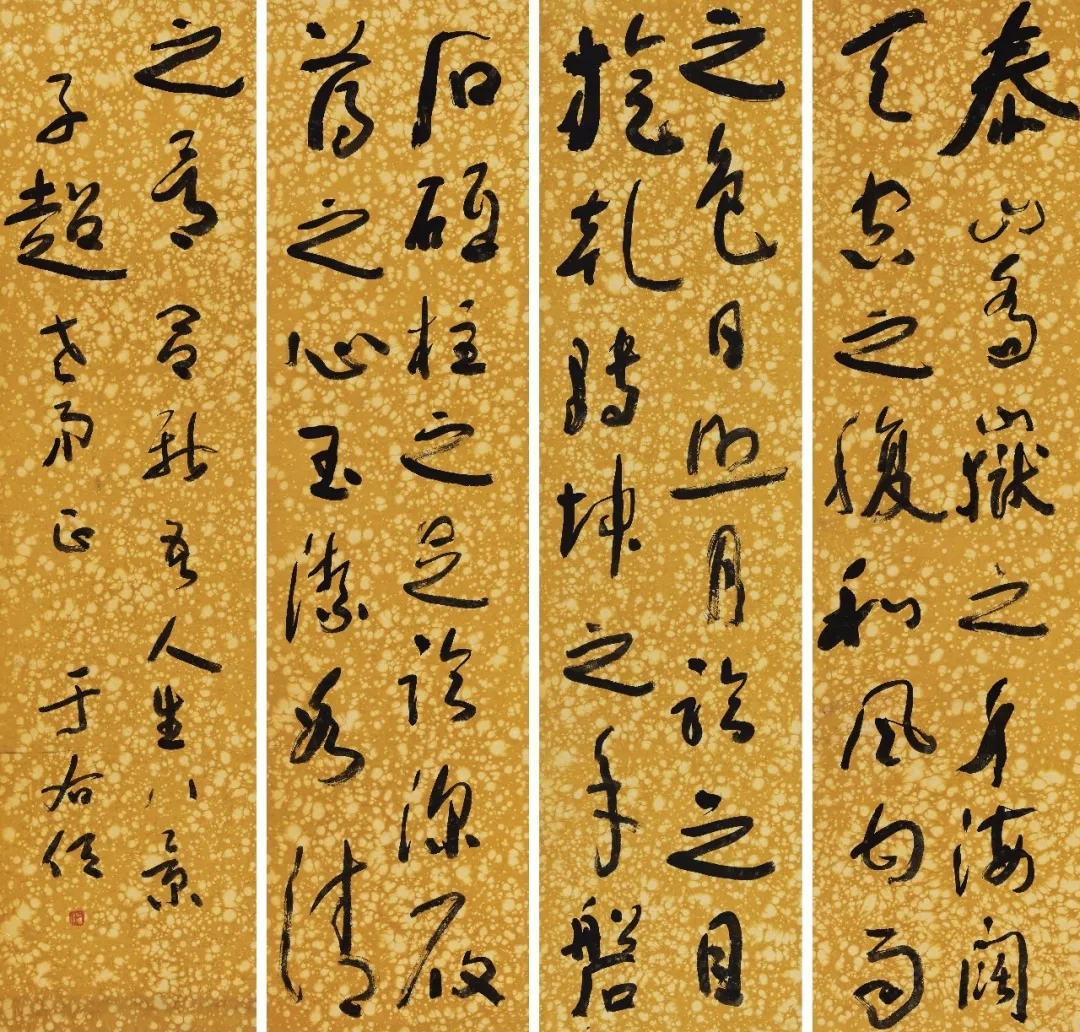 泰山喬嶽之身海闊
天空之腹和風甘雨
之色日照月臨之目
旋乾轉坤之手磐
石砥柱之足臨深履
薄之心玉潔冰清
之骨 呂新吾人生八景
子超老弟正 于右任